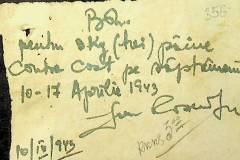 Bon
pentru 3 kg (trei) pâine
Contra cost pe săptămâna
10-17 Aprilie 1943
10/IV 943
356